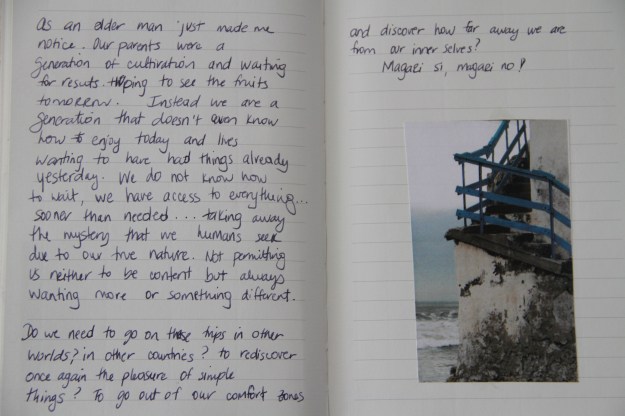 As an older man just made me
notice. Our parents were a
generation of cultivation and waiting
for results. Hoping to see the fruits
tomorrow. Instead we are a
generation that doesn't even know
how to enjoy today and lives
wanting to have had things already
yesterday. We do not know how
to wait, we have access to everything...
sooner than needed... taking away
the mystery that we humans seek
due to our true nature. Not permitting
us neither to be content but always
wanting more or something different.
Do we need to go on these trips in other
worlds? in other countries? to rediscover
once again the pleasure of simple
things? To go out of our comfort zones
and discover how far away we are
from our inner selves?
Magari si, magari no!